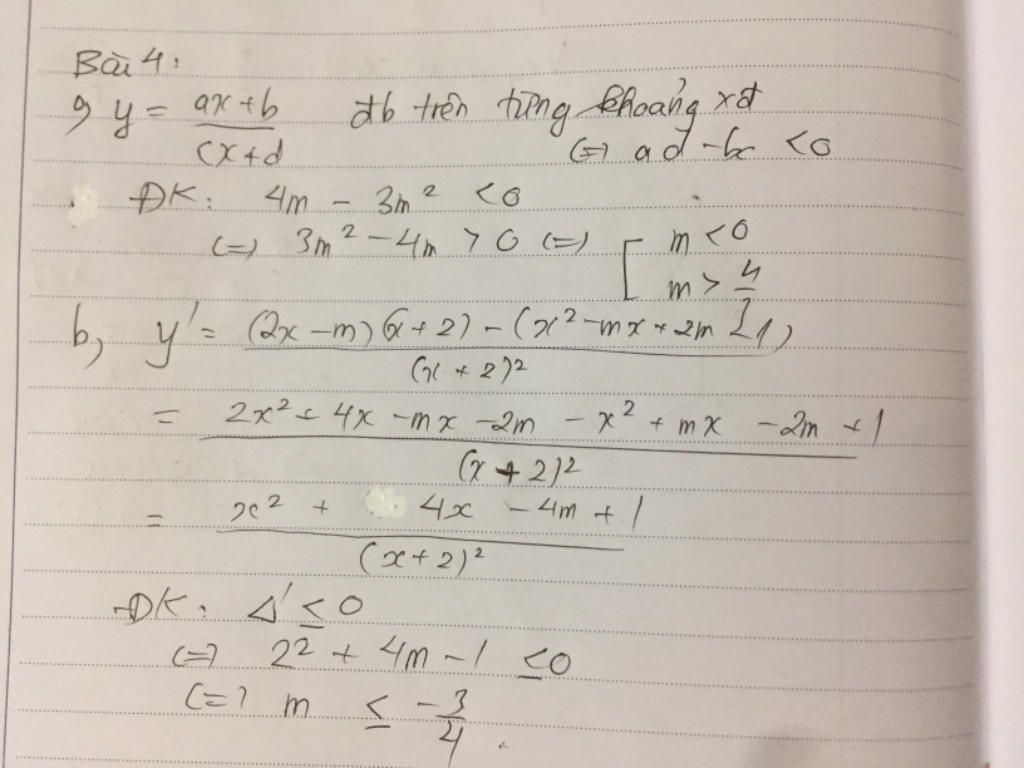 Bài 4:
a, y = (ax + b)/(cx + d) đb trên từng khoảng xđ
(=) ad - bc < 0
ĐK: 4m - 3m² < 0
(=) 3m² - 4m > 0 (=) [ m < 0
m > 4/3
b, y' = ((2x - m)(x + 2) - (x² - mx + 2m - 1))/(x + 2)²
= (2x² + 4x - mx - 2m - x² + mx - 2m + 1)/(x + 2)²
= (x² + 4x - 4m + 1)/(x + 2)²
ĐK: Δ' ≤ 0
(=) 2² + 4m - 1 ≤ 0
(=) m ≤ -3/4.